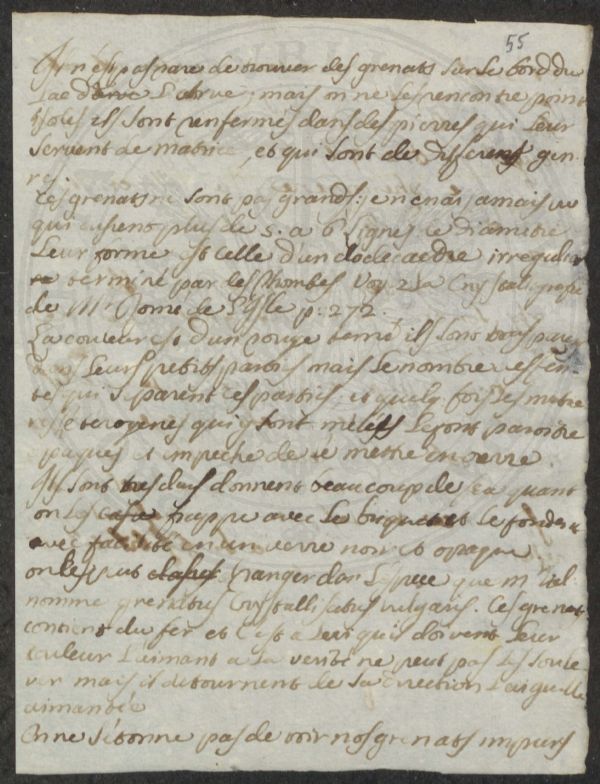 55
Il n'est pas rare de trouver des grenats sur le bord du
Lac mais on ne les rencontre point
isolés ils sont renfermés dans des pierres qui leur
servent de matrice, et qui sont de differents gen-
res.
Ces grenats ne sont pas grands: je n'en ai jamais vu
qui eussent plus de 5. a 6 lignes de diametre
Leur forme est celle d'un dodecaedre irregulier
terminé par les Rhombes Voy. La Crystalografie
de Mr Romé de l'Isle p. 272.
La couleur est d'un rouge ils sont
dans leurs petites parties mais le nombre
qui separent ces parties, et quelq. fois les
eterogenes qui y sont melées Le font paroitre
opaques et empeche de le mettre en œuvre
Ils sont tres durs donnent beaucoup de quant
on les frappe avec le briquet et se
avec facilité en un verre noir et opaque
on les peut ranger dans l'espece que m.
nomme granatus Crystallisatus vulgaris. Ces grenats
contient du fer et c'est a lui qu'il doivent leur
couleur L'aimant a la verité ne peut pas les soule
ver mais il detournent de sa direction l'aiguille
aimantée
On ne s'etonne pas de voir nos grenats impurs